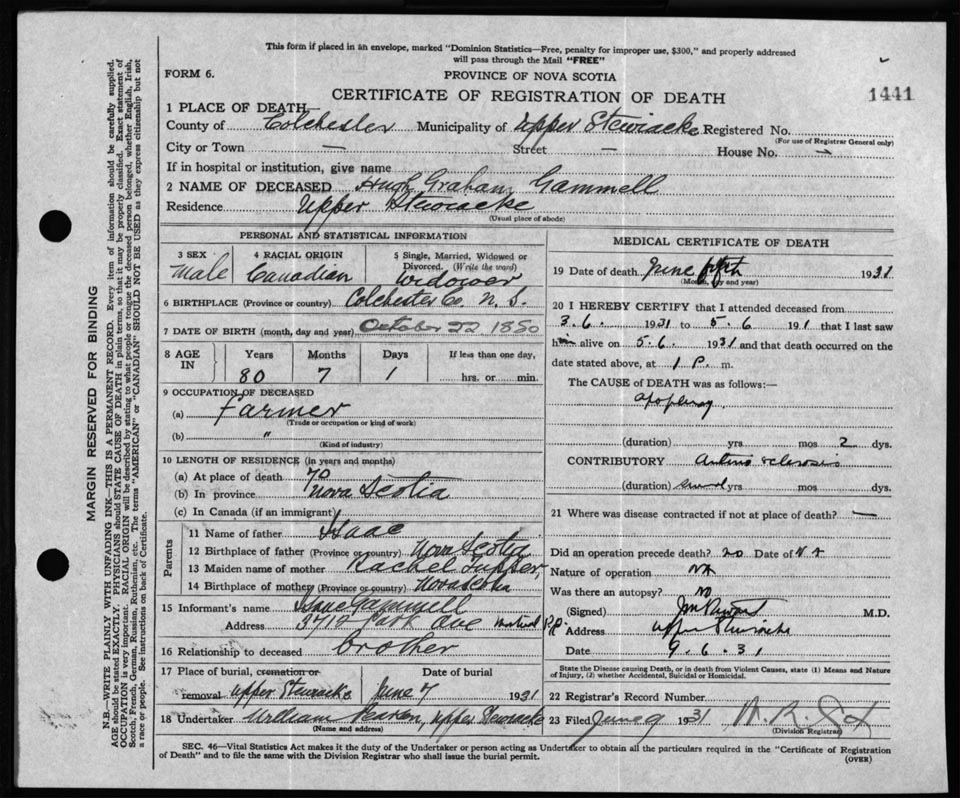 This form if placed in an envelope, marked "Dominion Statistics—Free, penalty for improper use, $300," and properly addressed
will pass through the Mail "FREE"
FORM 6.
PROVINCE OF NOVA SCOTIA
CERTIFICATE OF REGISTRATION OF DEATH
1441
1 PLACE OF DEATH—
County of Colchester Municipality of Upper Stewiacke Registered No.
(For use of Registrar General only)
City or Town — Street — House No. —
If in hospital or institution, give name
2 NAME OF DECEASED Hugh Graham Gammell
Residence Upper Stewiacke
(Usual place of abode)
PERSONAL AND STATISTICAL INFORMATION
3 SEX male
4 RACIAL ORIGIN Canadian
5 Single, Married, Widowed or Divorced. (Write the word) Widower
6 BIRTHPLACE (Province or country) Colchester Co. N. S.
7 DATE OF BIRTH (month, day and year) October 22 1850
8 AGE IN Years Months Days If less than one day,
80 7 1 hrs. or min.
9 OCCUPATION OF DECEASED
(a) Farmer
(Trade or occupation or kind of work)
(b) "
(Kind of industry)
10 LENGTH OF RESIDENCE (in years and months)
(a) At place of death 70
(b) In province Nova Scotia
(c) In Canada (if an immigrant)
Parents
11 Name of father Isaac
12 Birthplace of father (Province or country) Nova Scotia
13 Maiden name of mother Rachel Tupper
14 Birthplace of mother (Province or country) Nova Scotia
15 Informant's name Isaac Gammell
Address 3712 Park Ave
16 Relationship to deceased brother
17 Place of burial, cremation or Date of burial
removal Upper Stewiacke June 7 1931
18 Undertaker William Upper Stewiacke
(Name and address)
MEDICAL CERTIFICATE OF DEATH
19 Date of death June fifth 1931
(Month, day and year)
20 I HEREBY CERTIFY that I attended deceased from
3.6. 1931 to 5.6 191 that I last saw
him alive on 5.6. 1931 and that death occurred on the
date stated above, at 1 P. m.
The CAUSE of DEATH was as follows:—
apoplexy
(duration) yrs mos 2 dys.
CONTRIBUTORY Arterio sclerosis
(duration) several yrs mos dys.
21 Where was disease contracted if not at place of death? —
Did an operation precede death? no Date of N A
Nature of operation NA
Was there an autopsy? NO
(Signed) M.D.
Address Upper Stewiacke
Date 9.6.31
State the Disease causing Death, or in death from Violent Causes, state (1) Means and Nature
of Injury, (2) whether Accidental, Suicidal or Homicidal.
22 Registrar's Record Number
23 Filed June 9 1931
(Division Registrar)
SEC. 46—Vital Statistics Act makes it the duty of the Undertaker or person acting as Undertaker to obtain all the particulars required in the "Certificate of Registration
of Death" and to file the same with the Division Registrar who shall issue the burial permit.
(OVER)
MARGIN RESERVED FOR BINDING
N.B.—WRITE PLAINLY WITH UNFADING INK—THIS IS A PERMANENT RECORD. Every item of information should be carefully supplied.
AGE should be stated EXACTLY. PHYSICIANS should STATE CAUSE OF DEATH in plain terms, so that it may be properly classified. Exact statement of
OCCUPATION is very important. RACIAL ORIGIN will be described by stating to what people or tongue the deceased person belonged, whether English, Irish,
Scotch, French, German, Russian, Ruthenian, etc. The terms "AMERICAN" or "CANADIAN" SHOULD NOT BE USED as they express citizenship but not
a race or people. See instructions on back of Certificate.